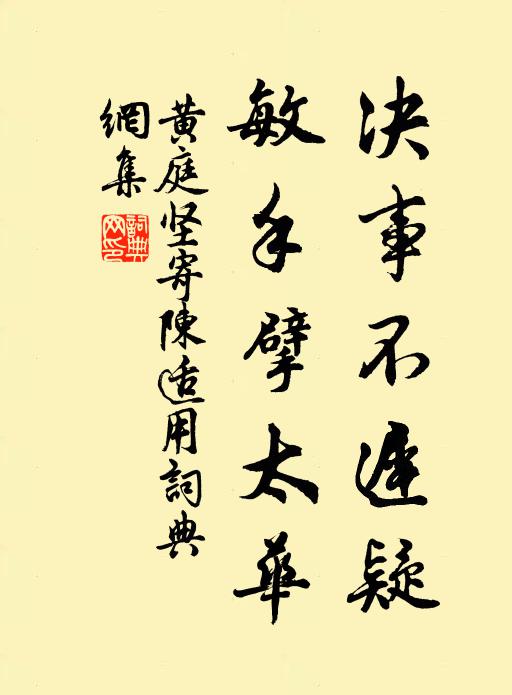 决事不遲疑
敏手擘太華
黄庭坚寄陳适用詞典
網集
詞典網印